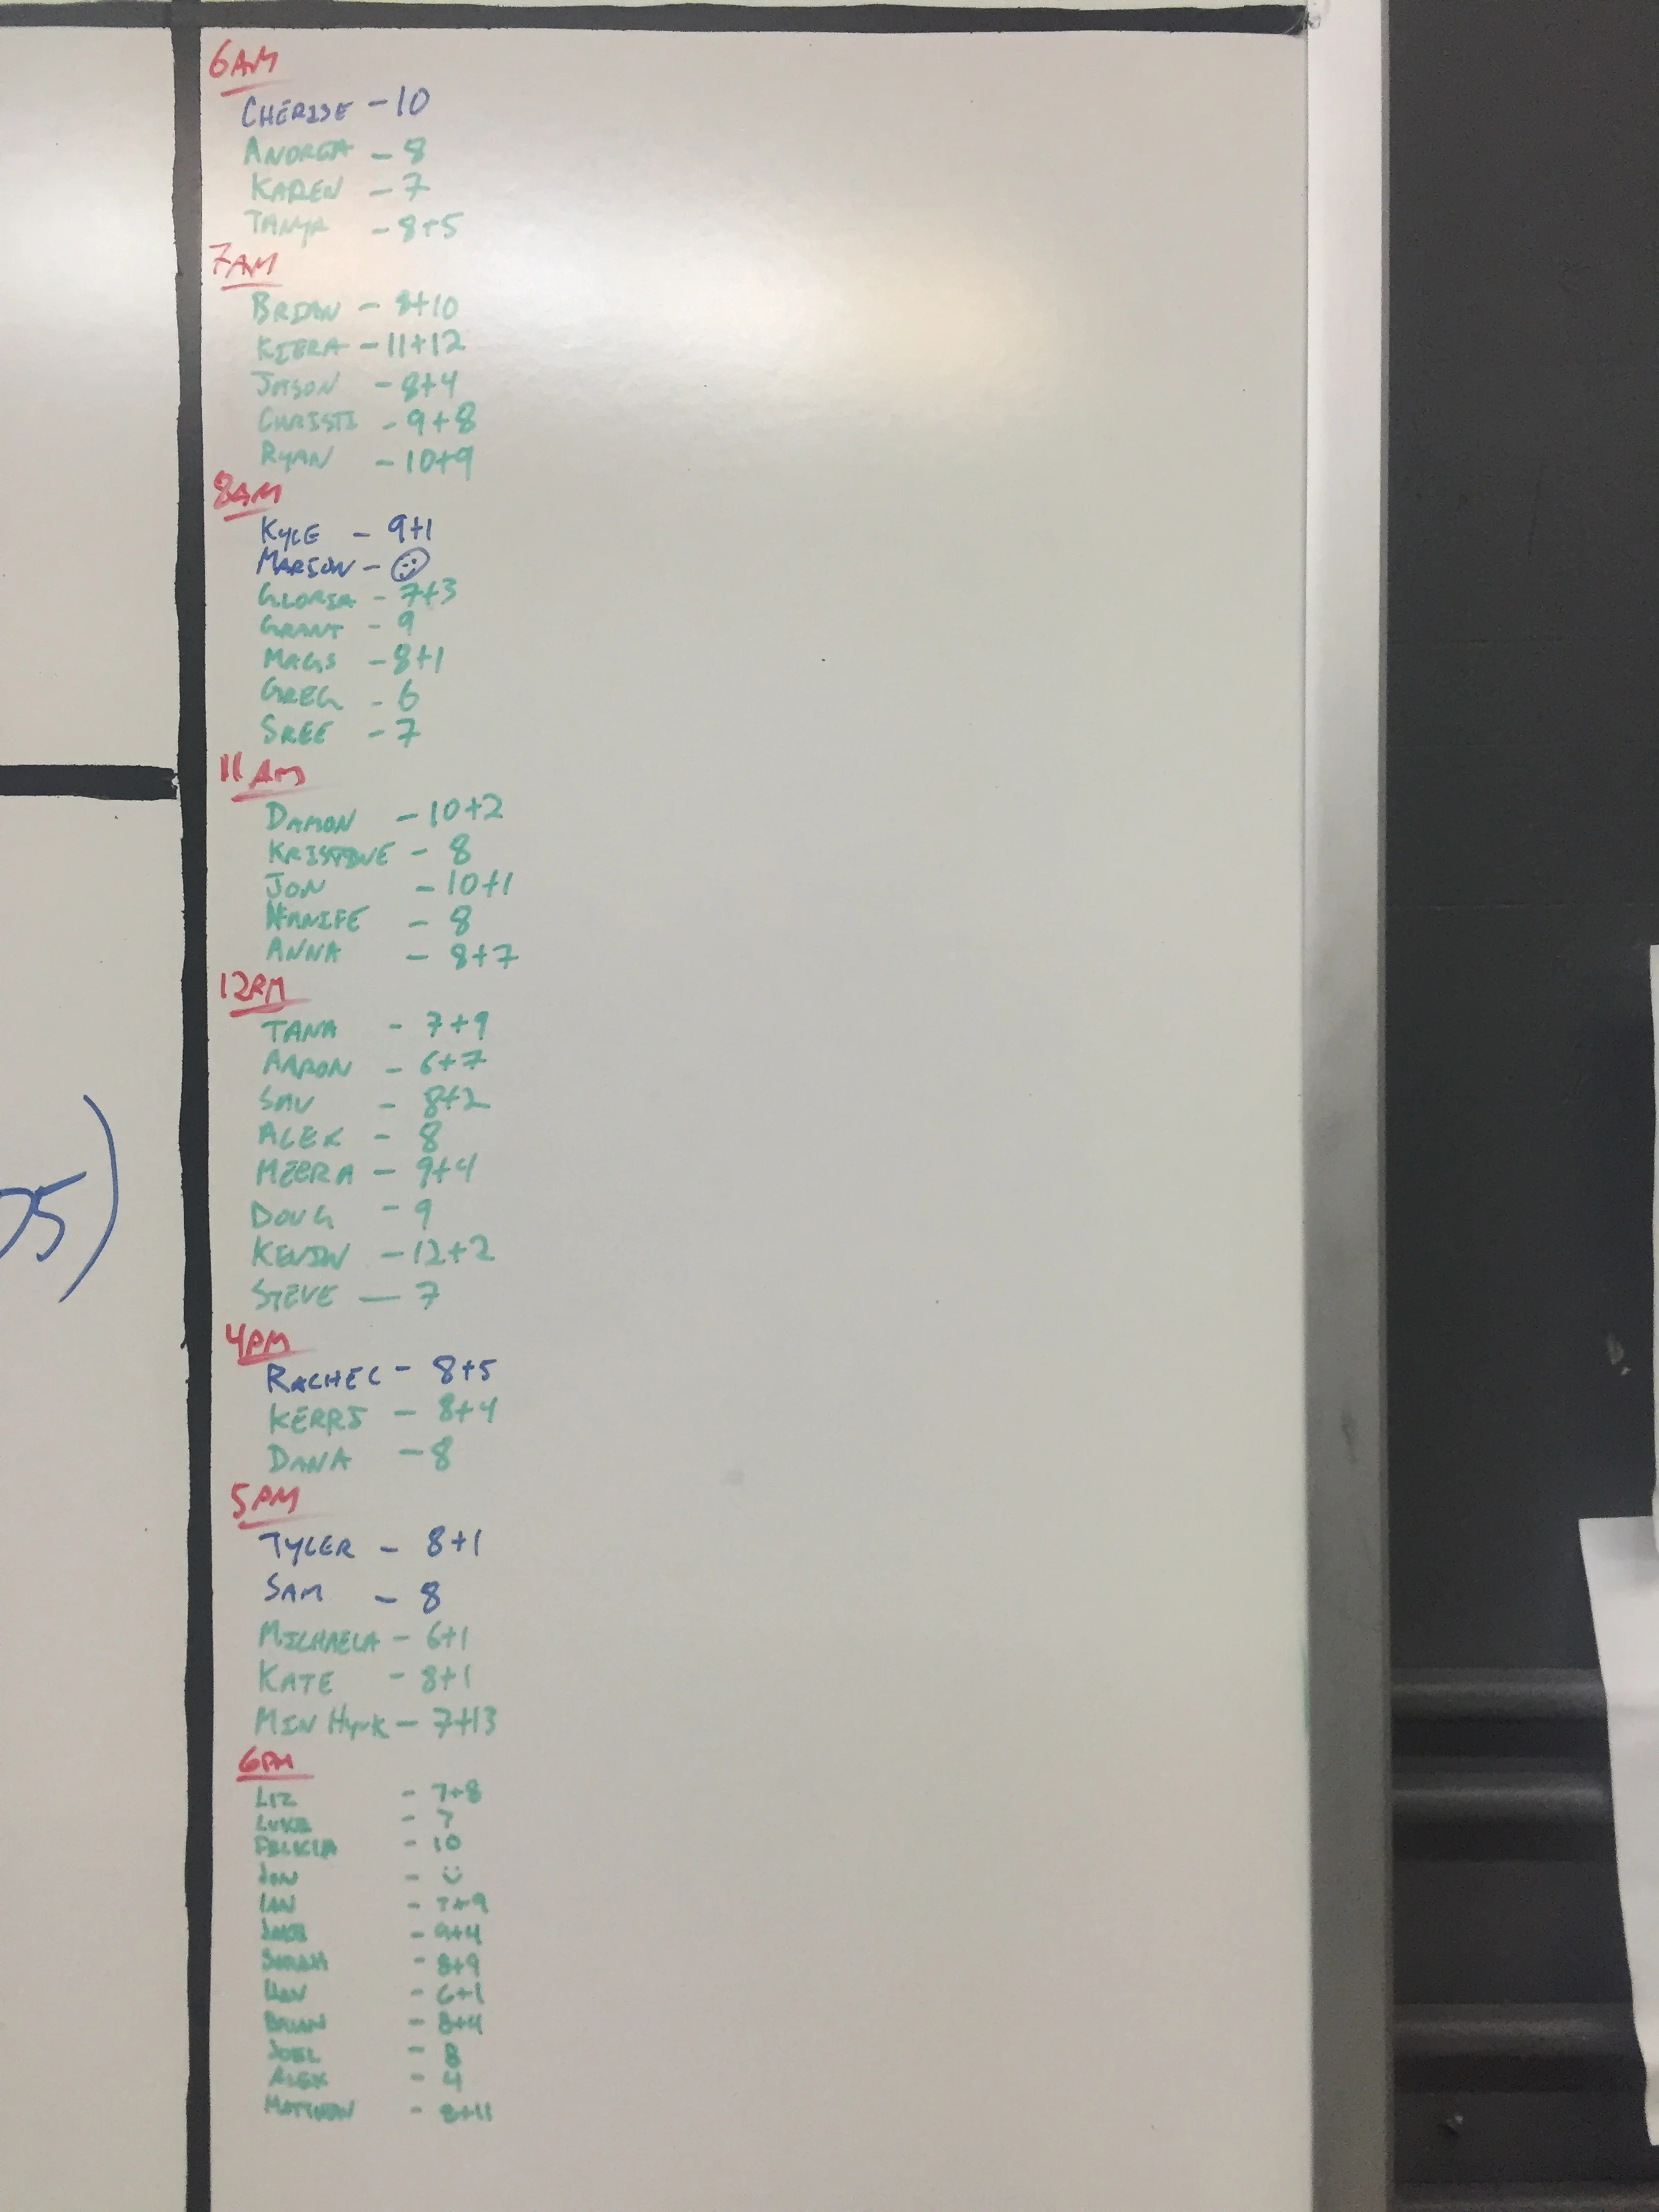 6AM
CHERISE - 10
ANDREA - 8
KAREN - 7
TANYA - 8+5
7AM
BRIAN - 8+10
KIERA - 11+12
JASON - 8+4
CHRISTI - 9+8
RYAN - 10+9
8AM
KYLE - 9+1
MARSON - ☺
GLORIA - 7+3
GRANT - 9
MAGS - 8+1
GREG - 6
SREE - 7
11AM
DAMON - 10+2
KRISTINE - 8
JON - 10+1
HANIFE - 8
ANNA - 8+7
12PM
TANA - 7+9
AARON - 6+7
SAV - 8+2
ALEX - 8
MEERA - 9+4
DOUG - 9
KEVIN - 12+2
STEVE - 7
4PM
RACHEL - 8+5
KERRI - 8+4
DANA - 8
5PM
TYLER - 8+1
SAM - 8
MICHAELA - 6+1
KATE - 8+1
MIN HYUK - 7+13
05)
6PM
LIZ - 7+8
LUKE - 7
FELICIA - 10
JON - ☺
IAN - 7+9
JAKE - 9+4
SARAH - 8+9
- 6+1
BRIAN - 8+4
JOEL - 8
ALEX - 4
MATTHEW - 8+11